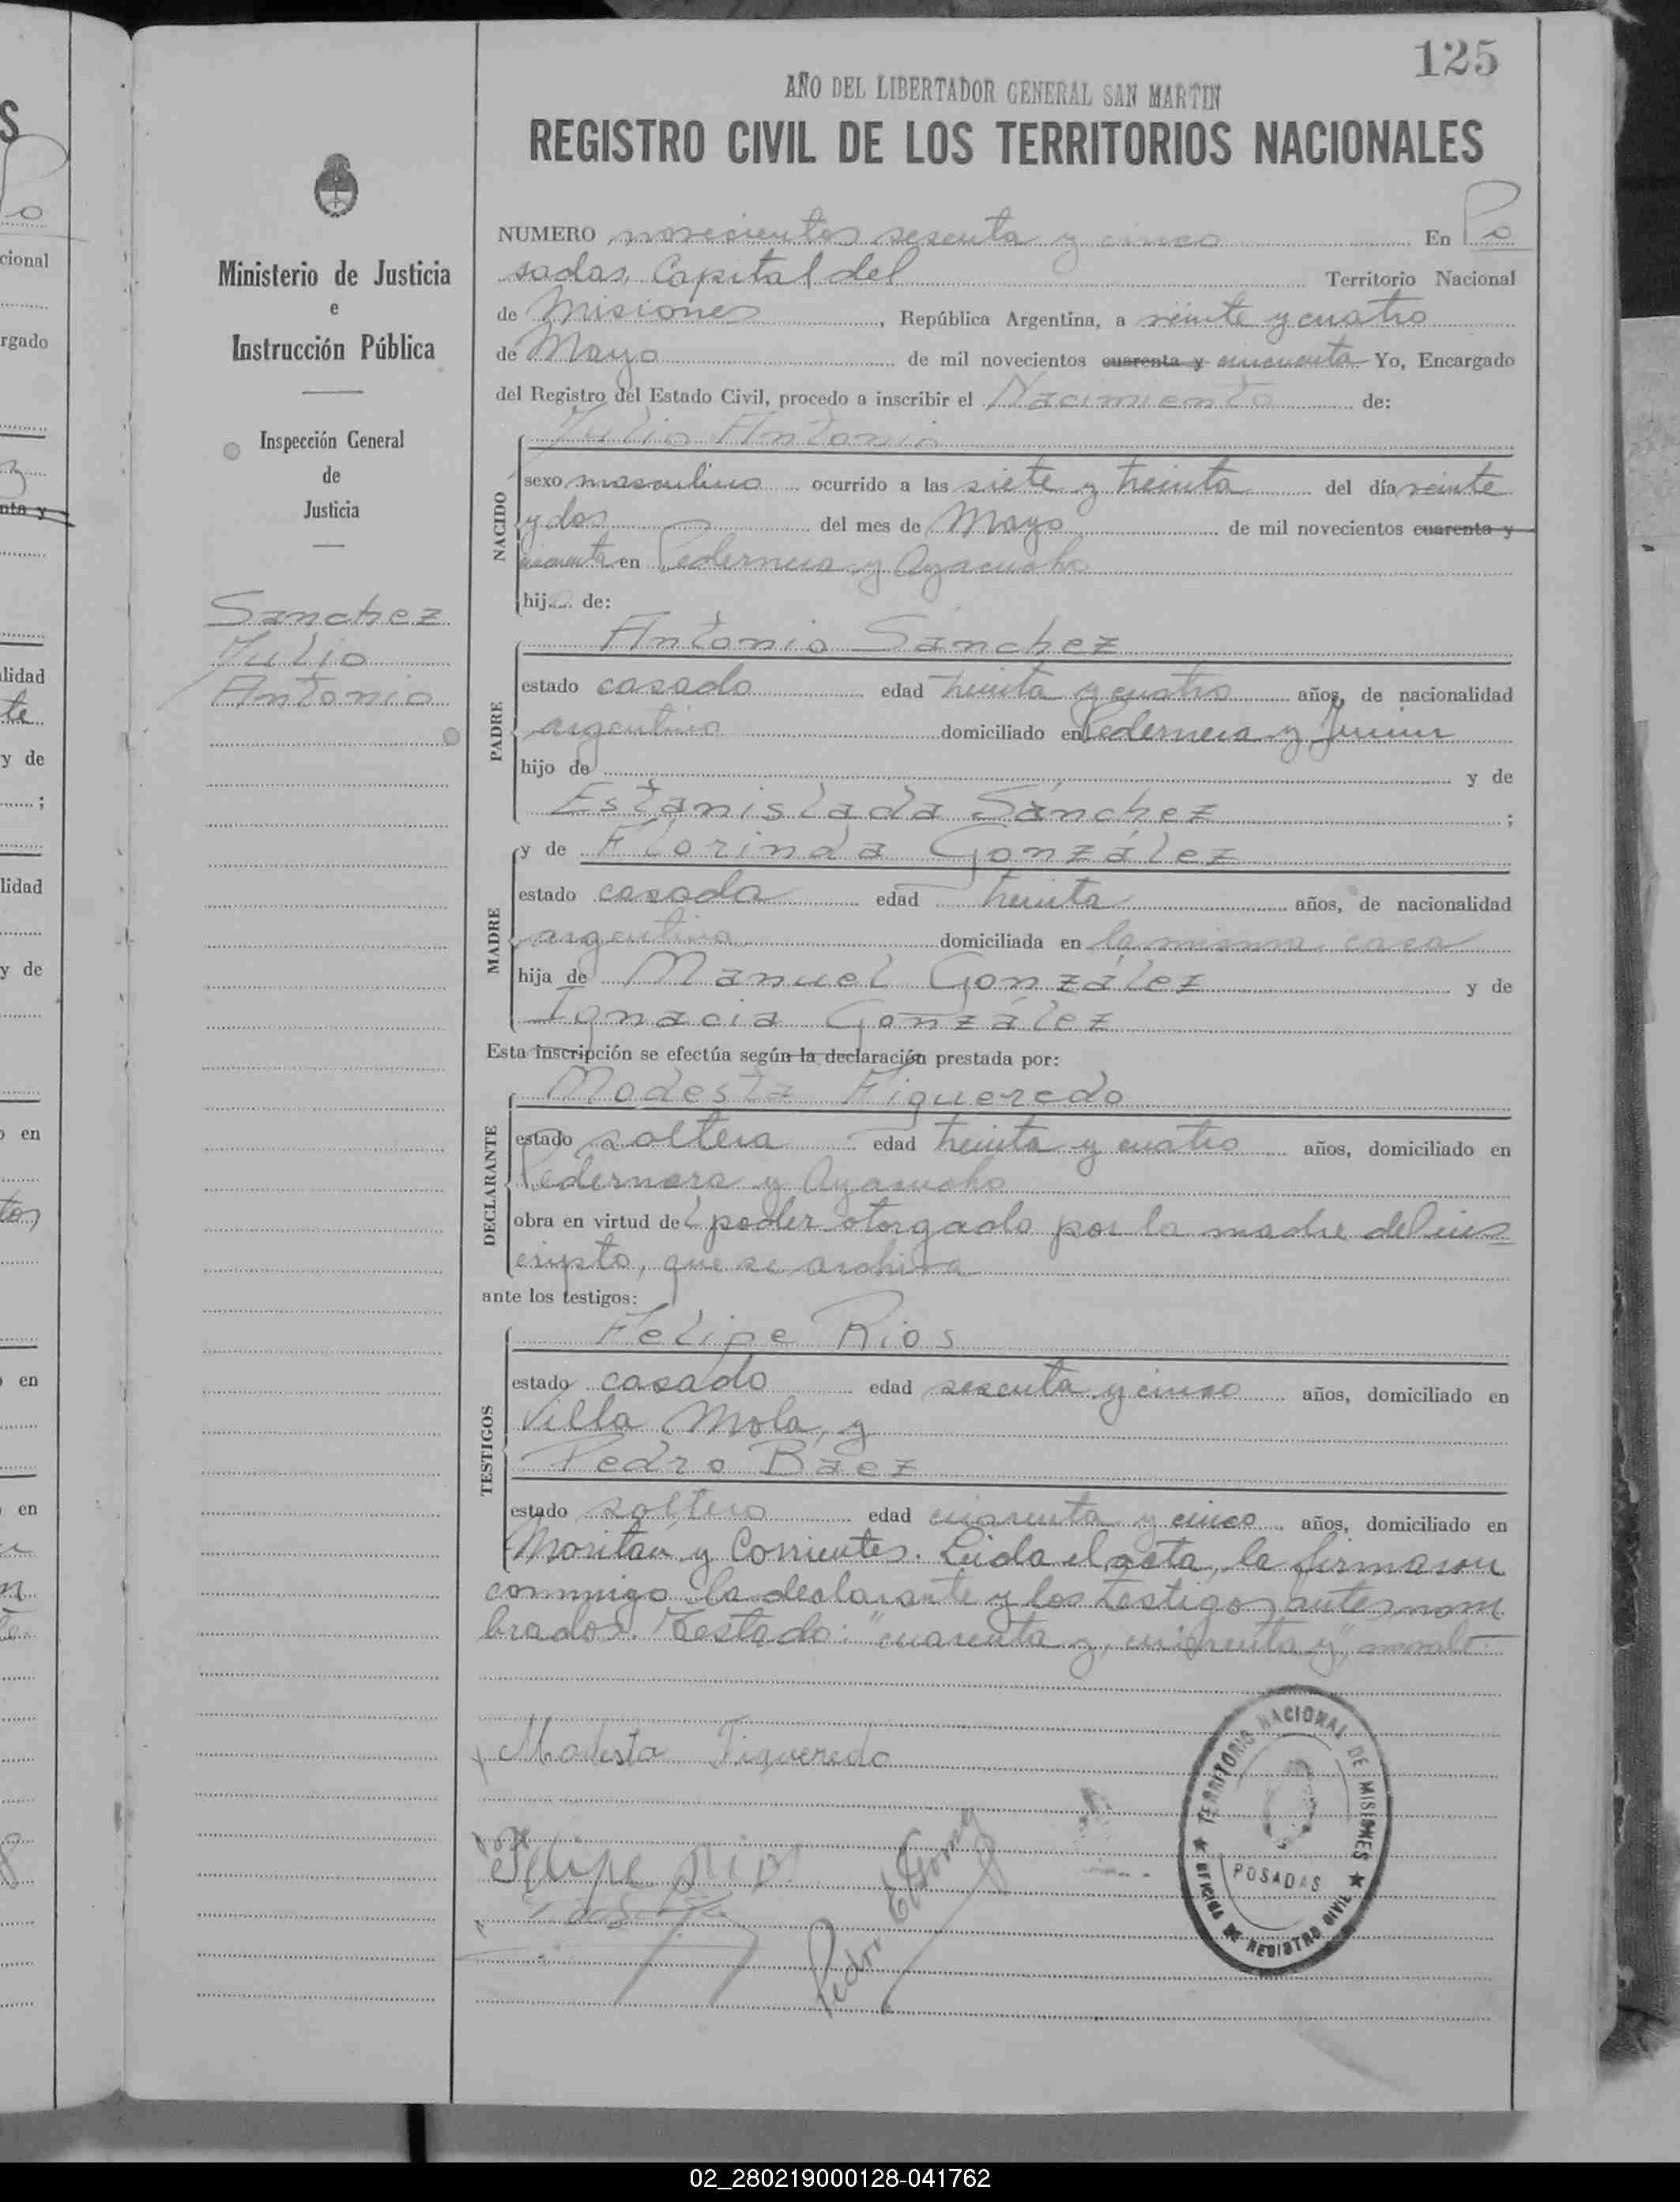 125
AÑO DEL LIBERTADOR GENERAL SAN MARTIN
REGISTRO CIVIL DE LOS TERRITORIOS NACIONALES
Ministerio de Justicia
e
Instrucción Pública
Inspección General
de
Justicia
Sanchez
Julio
Antonio
NUMERO novecientos sesenta y cinco En Po
sadas, Capital del Territorio Nacional
de Misiones, República Argentina, a veinte y cuatro
de Mayo de mil novecientos cuarenta y cincuenta Yo, Encargado
del Registro del Estado Civil, procedo a inscribir el Nacimiento de:
NACIDO
Julio Antonio
sexo masculino ocurrido a las siete y treinta del día veinte
y dos del mes de Mayo de mil novecientos cuarenta y
cincuenta en Pedernera y Ayacucho
hijo de:
PADRE
Antonio Sánchez
estado casado edad treinta y cuatro años, de nacionalidad
argentino domiciliado en Pedernera y Junin
hijo de y de
Estanislada Sánchez ;
MADRE
y de Florinda González
estado casada edad treinta años, de nacionalidad
argentina domiciliada en la misma casa
hija de Manuel González y de
Ignacia González
Esta inscripción se efectúa según la declaración prestada por:
DECLARANTE
Modesta Figueredo
estado soltera edad treinta y cuatro años, domiciliado en
Pedernera y Ayacucho
obra en virtud del poder otorgado por la madre del ins
cripto, que se archiva
ante los testigos:
TESTIGOS
Felipe Rios
estado casado edad sesenta y cinco años, domiciliado en
Villa Mola, y
Pedro Báez
estado soltero edad cuarenta y cinco años, domiciliado en
Moritán y Corrientes. Leida el acta, la firmaron
conmigo la declarante y los testigos antenom
brados. Testado: "cuarenta y, cuarenta y", no vale.
Modesta Figueredo
Felipe Rios
Pedro
TERRITORIO NACIONAL DE MISIONES
POSADAS
OFICINA DE REGISTRO CIVIL
02_280219000128-041762